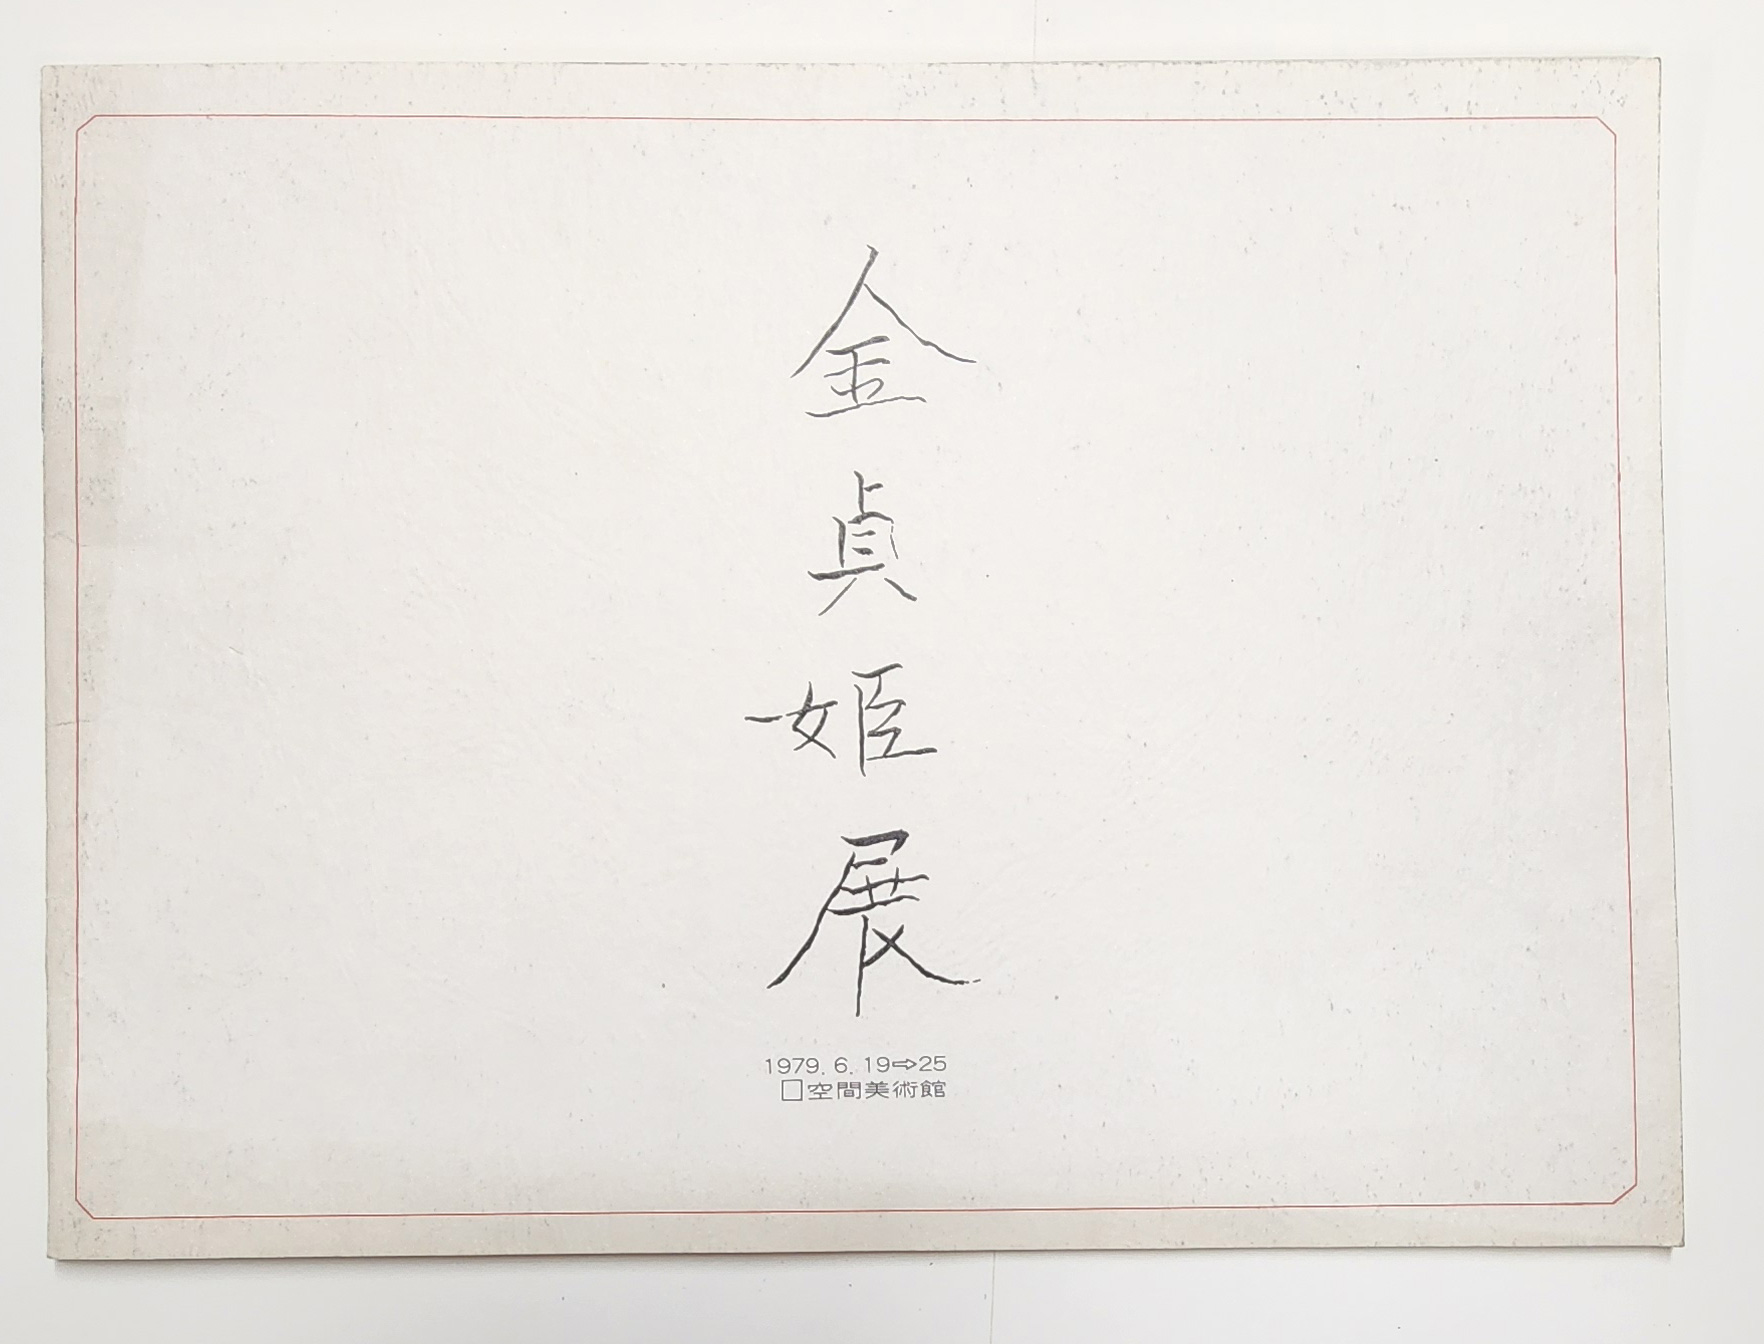 金貞姫展
1979. 6. 19⇨25
□空間美術館